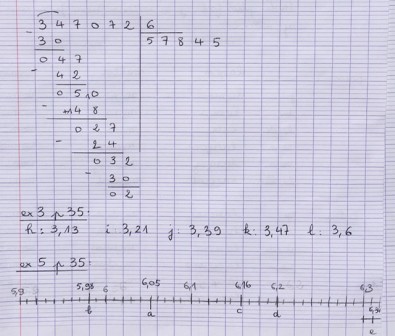 3 4 7 0 7 2 6
- 3 0 5 7 8 4 5
0 4 7
- 4 2
0 5 0
- 4 8
0 2 7
- 2 4
0 3 2
- 3 0
0 2
ex 3 p 35 :
h : 3,13 i : 3,21 j : 3,39 k : 3,47 l : 3,6
ex 5 p 35 :
5,9 5,98 6 6,05 6,1 6,16 6,2 6,3
b a c d
e